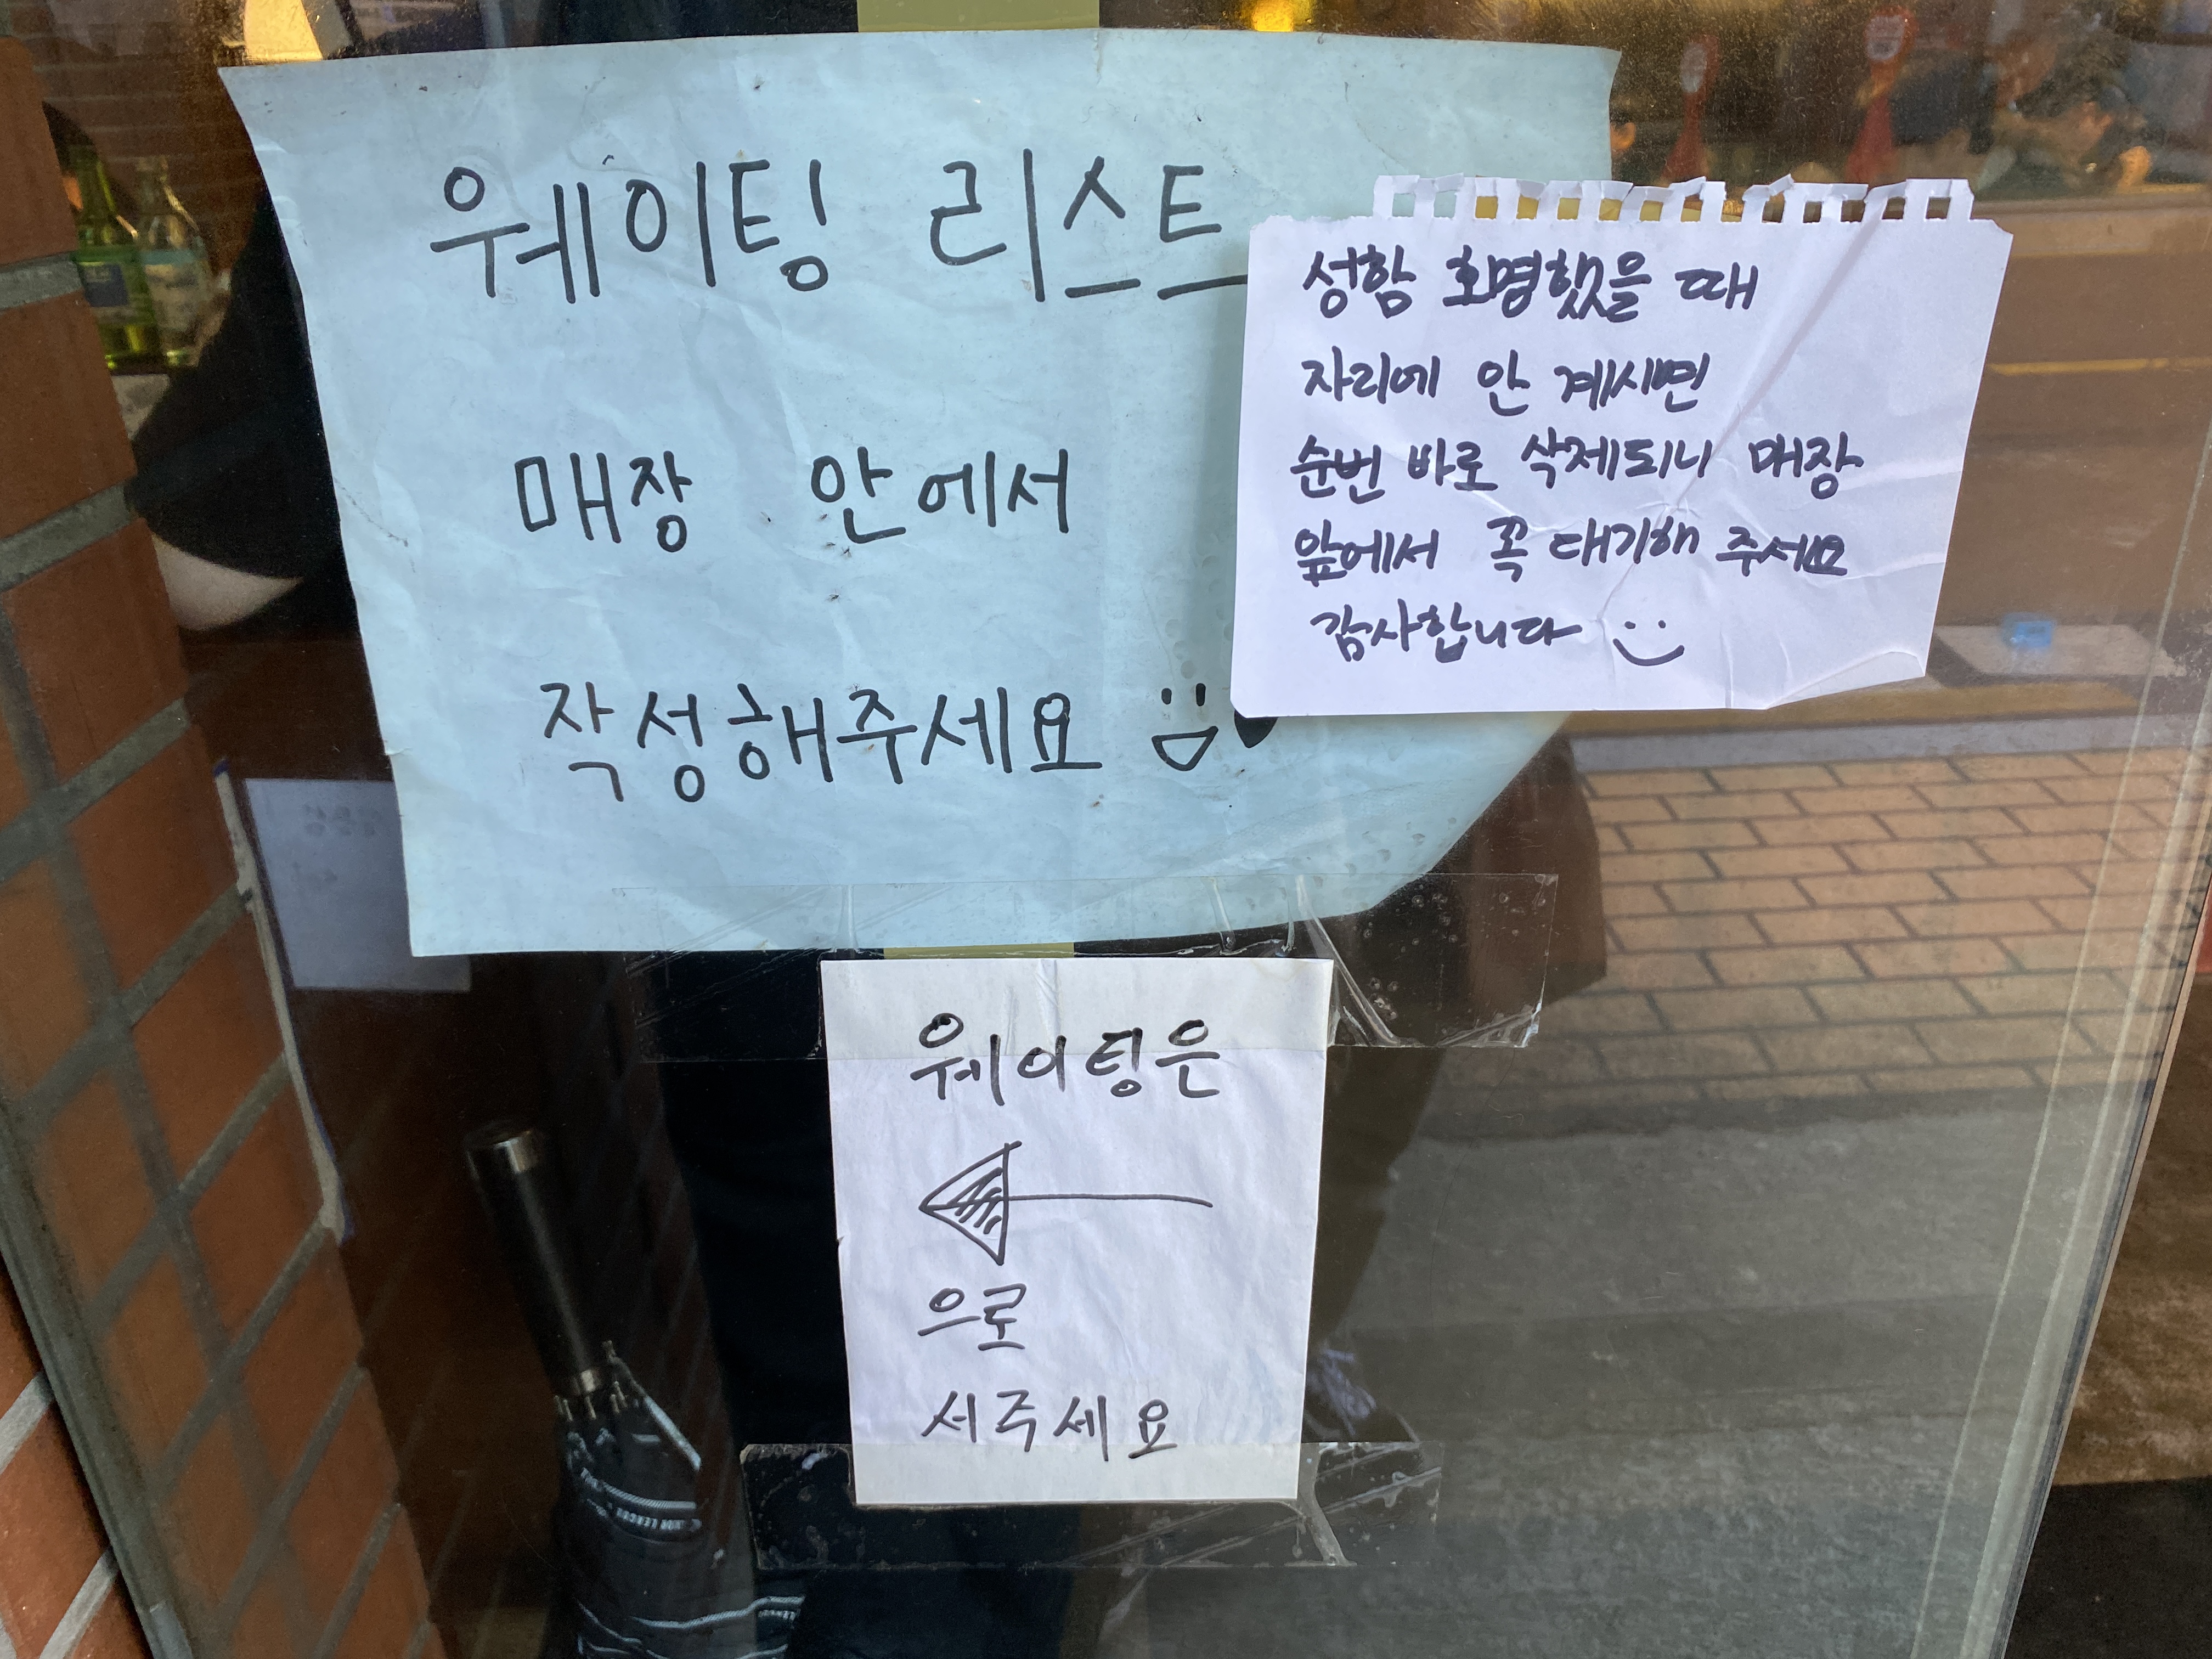 웨이팅 리스트
매장 안에서
작성해주세요
성함 호명했을 때
자리에 안 계시면
순번 바로 삭제되니 매장
앞에서 꼭 대기해 주세요
감사합니다
웨이팅은
으로
서주세요